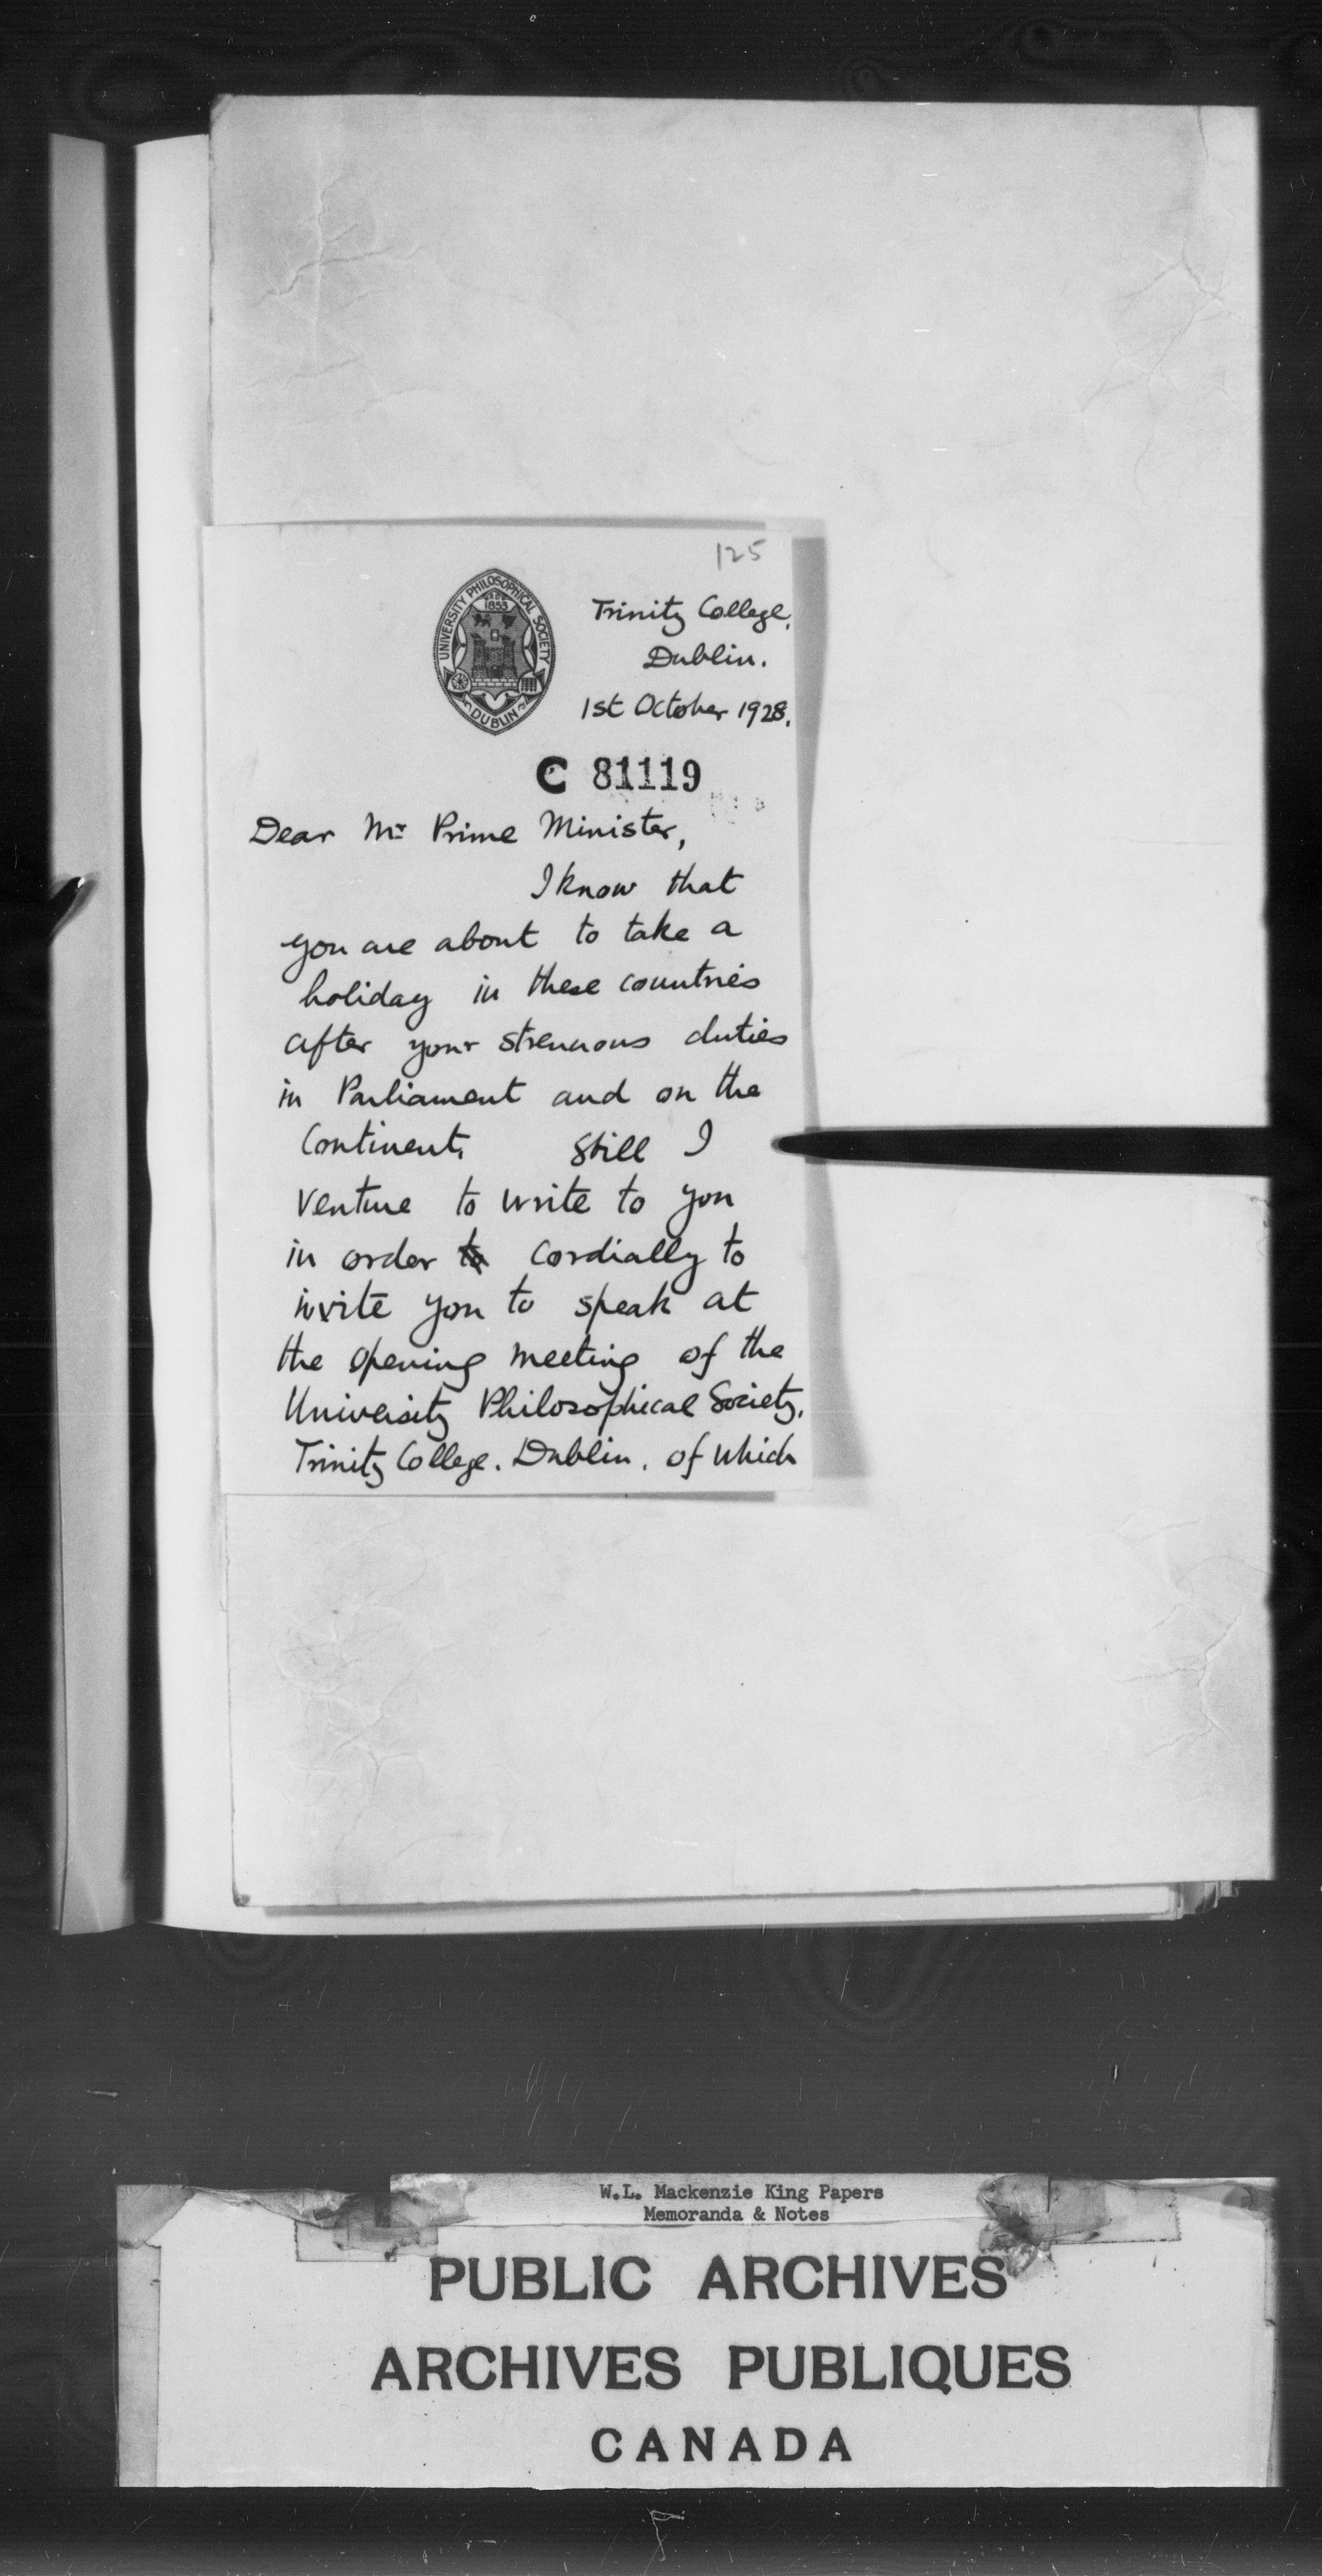 125
UNIVERSITY PHILOSOPHICAL SOCIETY
1853
DUBLIN
Trinity College,
Dublin.
1st October 1928.
C 81119
Dear Mr Prime Minister,
I know that
you are about to take a
holiday in these countries
after your strenuous duties
in Parliament and on the
Continent. Still I
venture to write to you
in order to cordially to
invite you to speak at
the opening meeting of the
University Philosophical Society,
Trinity College. Dublin. of which
W.L. Mackenzie King Papers
Memoranda & Notes
PUBLIC ARCHIVES
ARCHIVES PUBLIQUES
CANADA